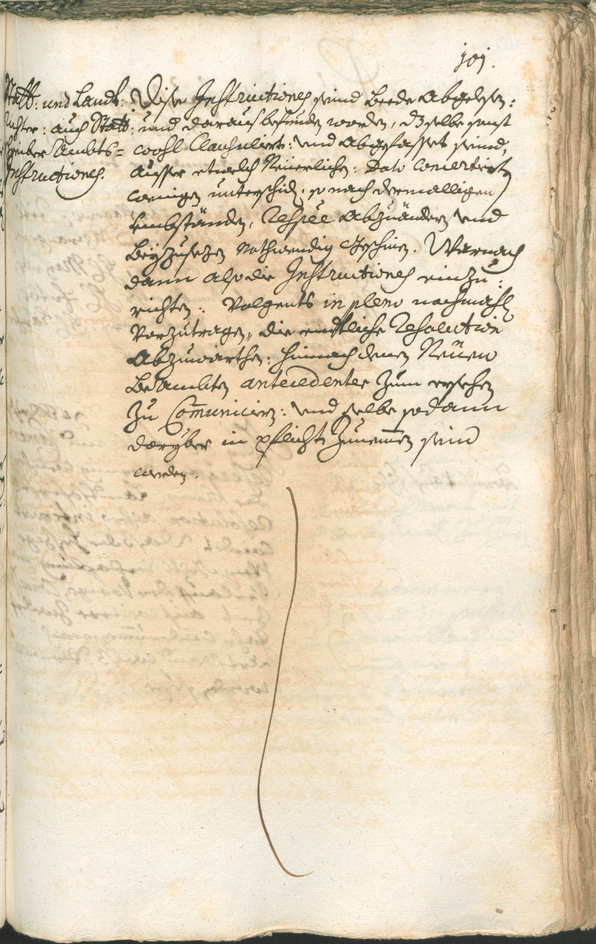 101.
Statt: und Landt:
richter: auch Statt:
schreiber Ambts=
Instructiones.
Dise Instructiones seind beede abgelesen:
und daraus befunden worden, dselbe sonst
wohl Clausuliert: und abgefasset seind,
ausser etwelch Neuerlichen: Dato
wenigen unterschid, so nach dermalligen
umbständen, Respèe abzuändern und
beyzusezen nothwendig schine. Warnach
dann also die Instructiones einzu:
richten: Volgents in pleno nachmahls
vorzutragen, die endtliche Resolution
abzuwarthen: hinnach denen Neuen
beambten antecedenter zum ersehen
zu Comunicirn: und selbe sodann
darüber in pflicht zunemmen seind
werden.